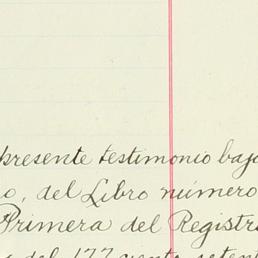 presente testimonio bajo
o, del Libro número
Primera del Registr
del 177 ciento setent